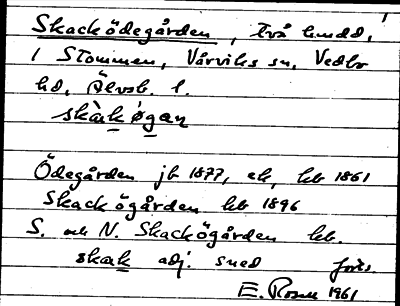 1
Skacködegården, två hmdd,
1 Stommen, Vårviks sn, Vedbo
hd, Älvsb. l.
skàkøgan
Ödegården jb 1877, ek, kb 1861
Skackögården kb 1896
S. och N. Skackögården kb.
skak adj. sned forts.
E. Rosén 1961